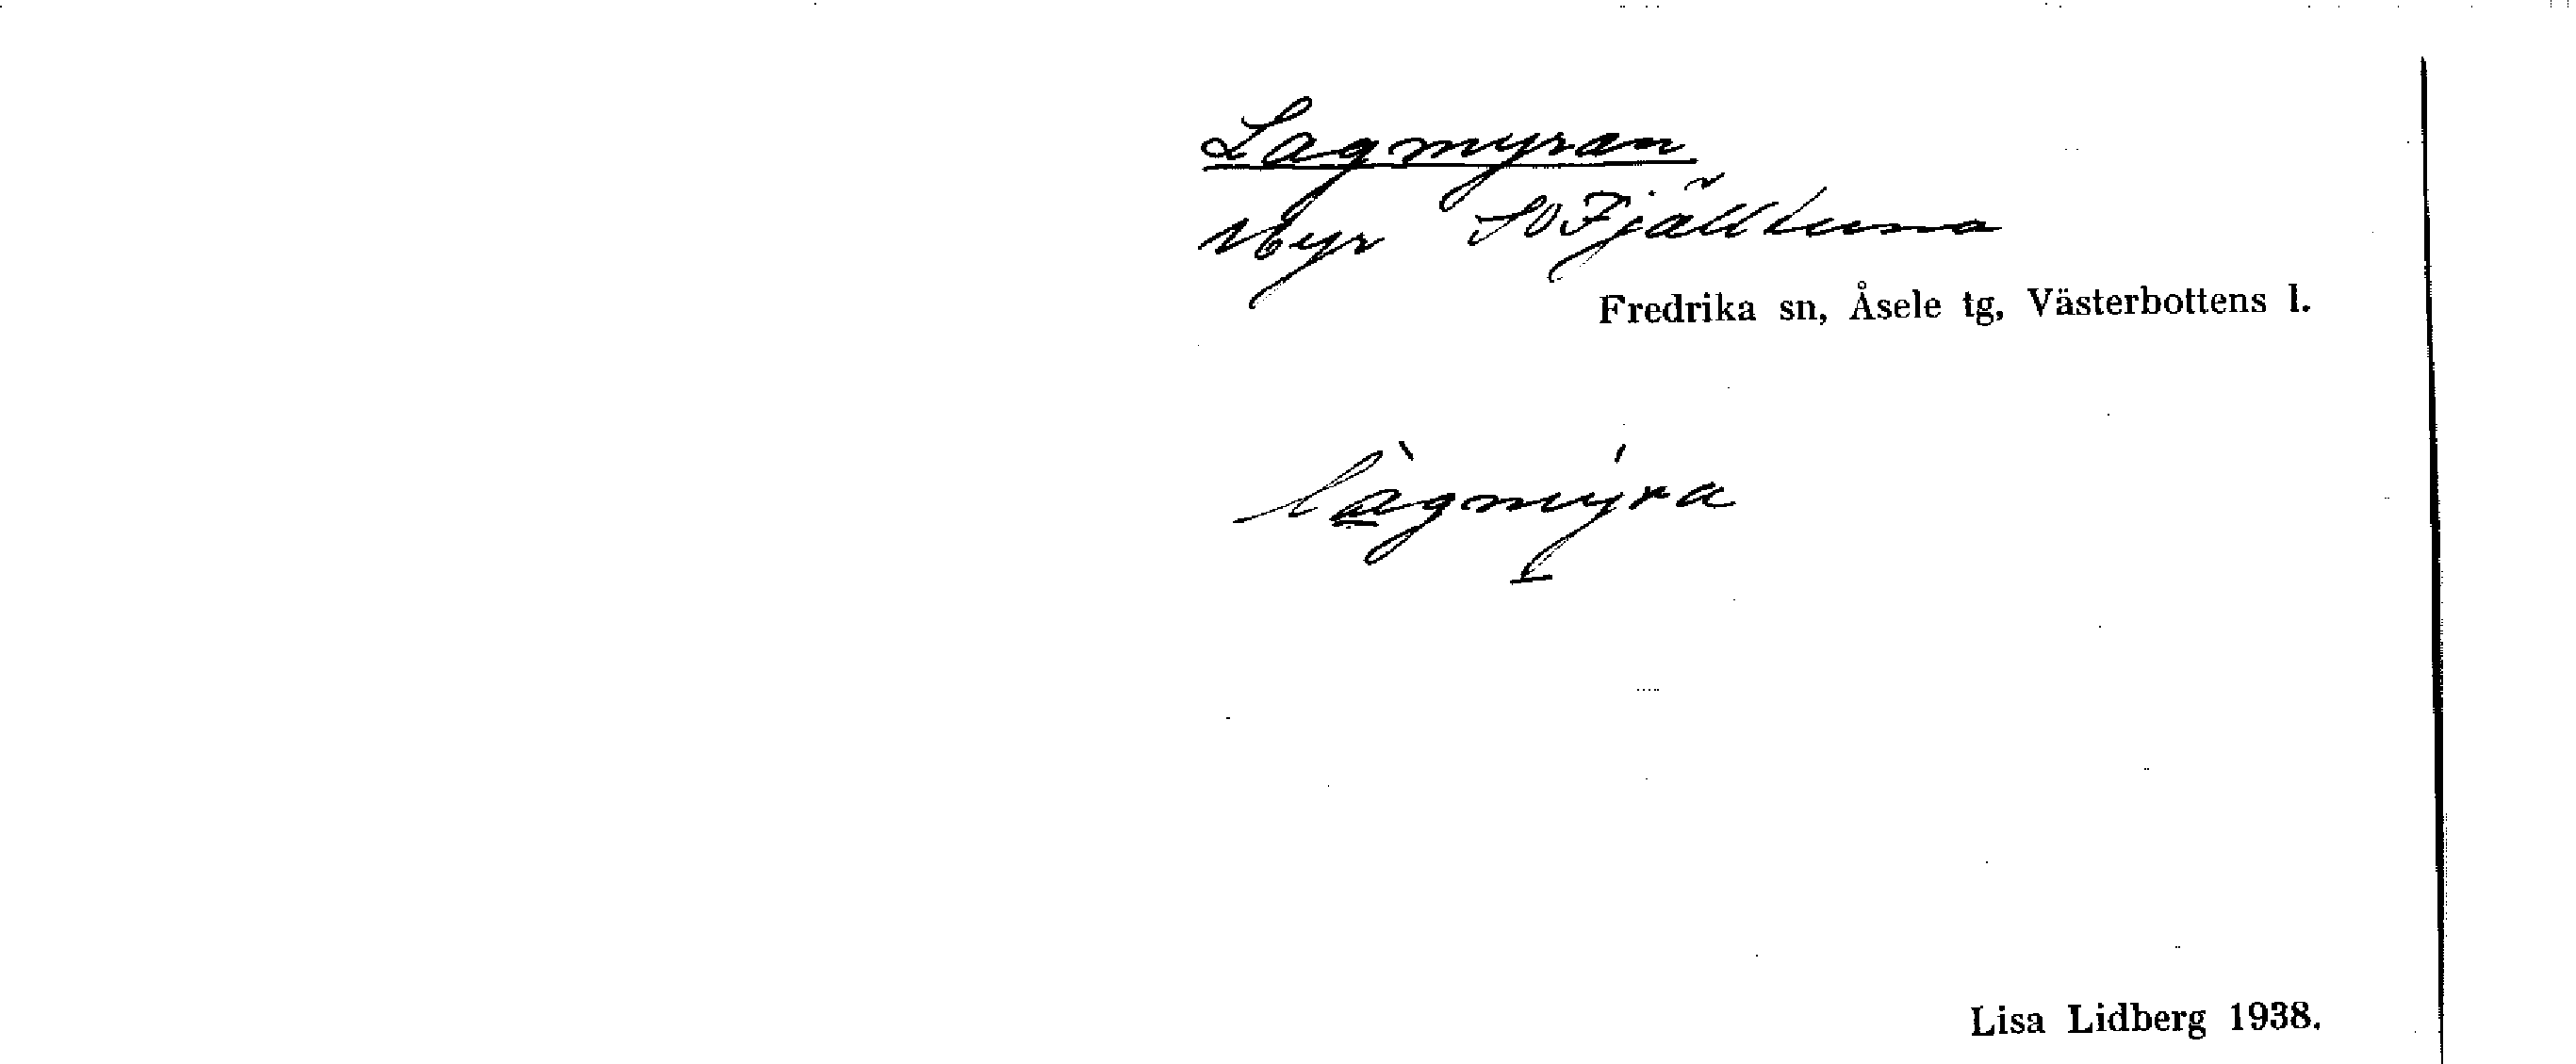 Lagmyran
Myr SO Fjälltuna
Fredrika sn, Åsele tg, Västerbottens l.
làgmýra
Lisa Lidberg 1938.